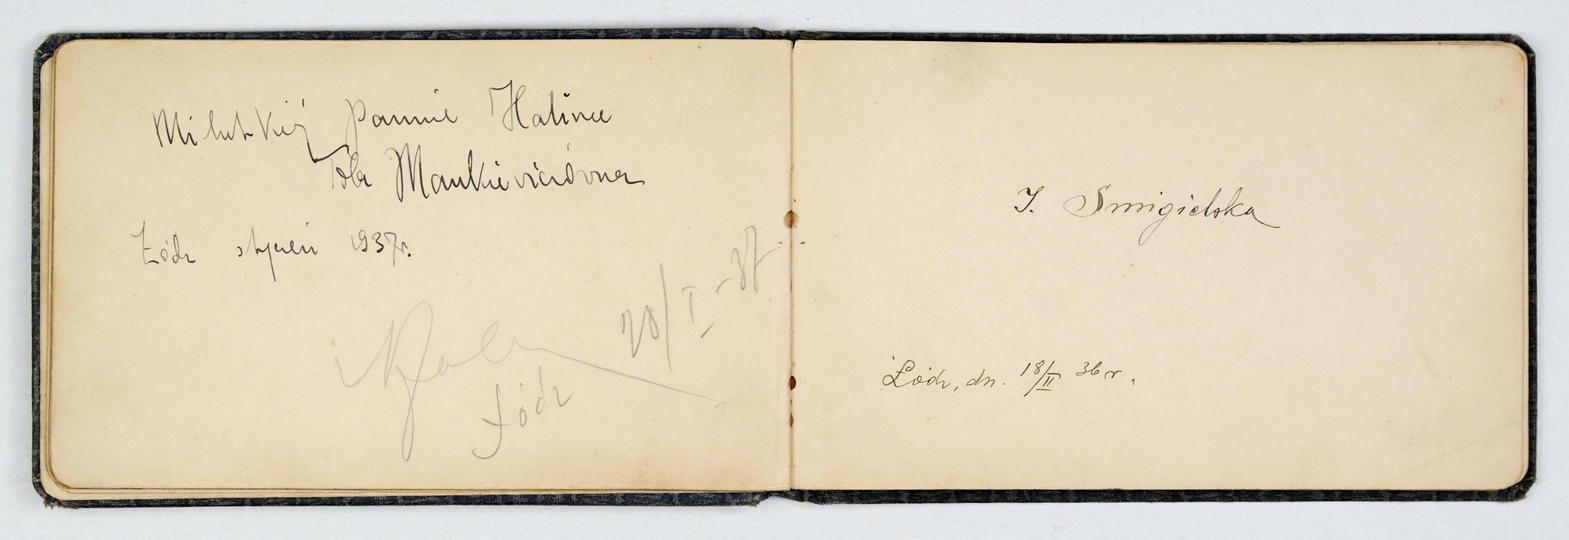 Milutkiej Pannie Halince
Tola Mankiewiczówna
Łódź styczeń 1937r.
20/I -37
Łódź
I. Smigielska
Łódź, dn. 18/II 36 r.